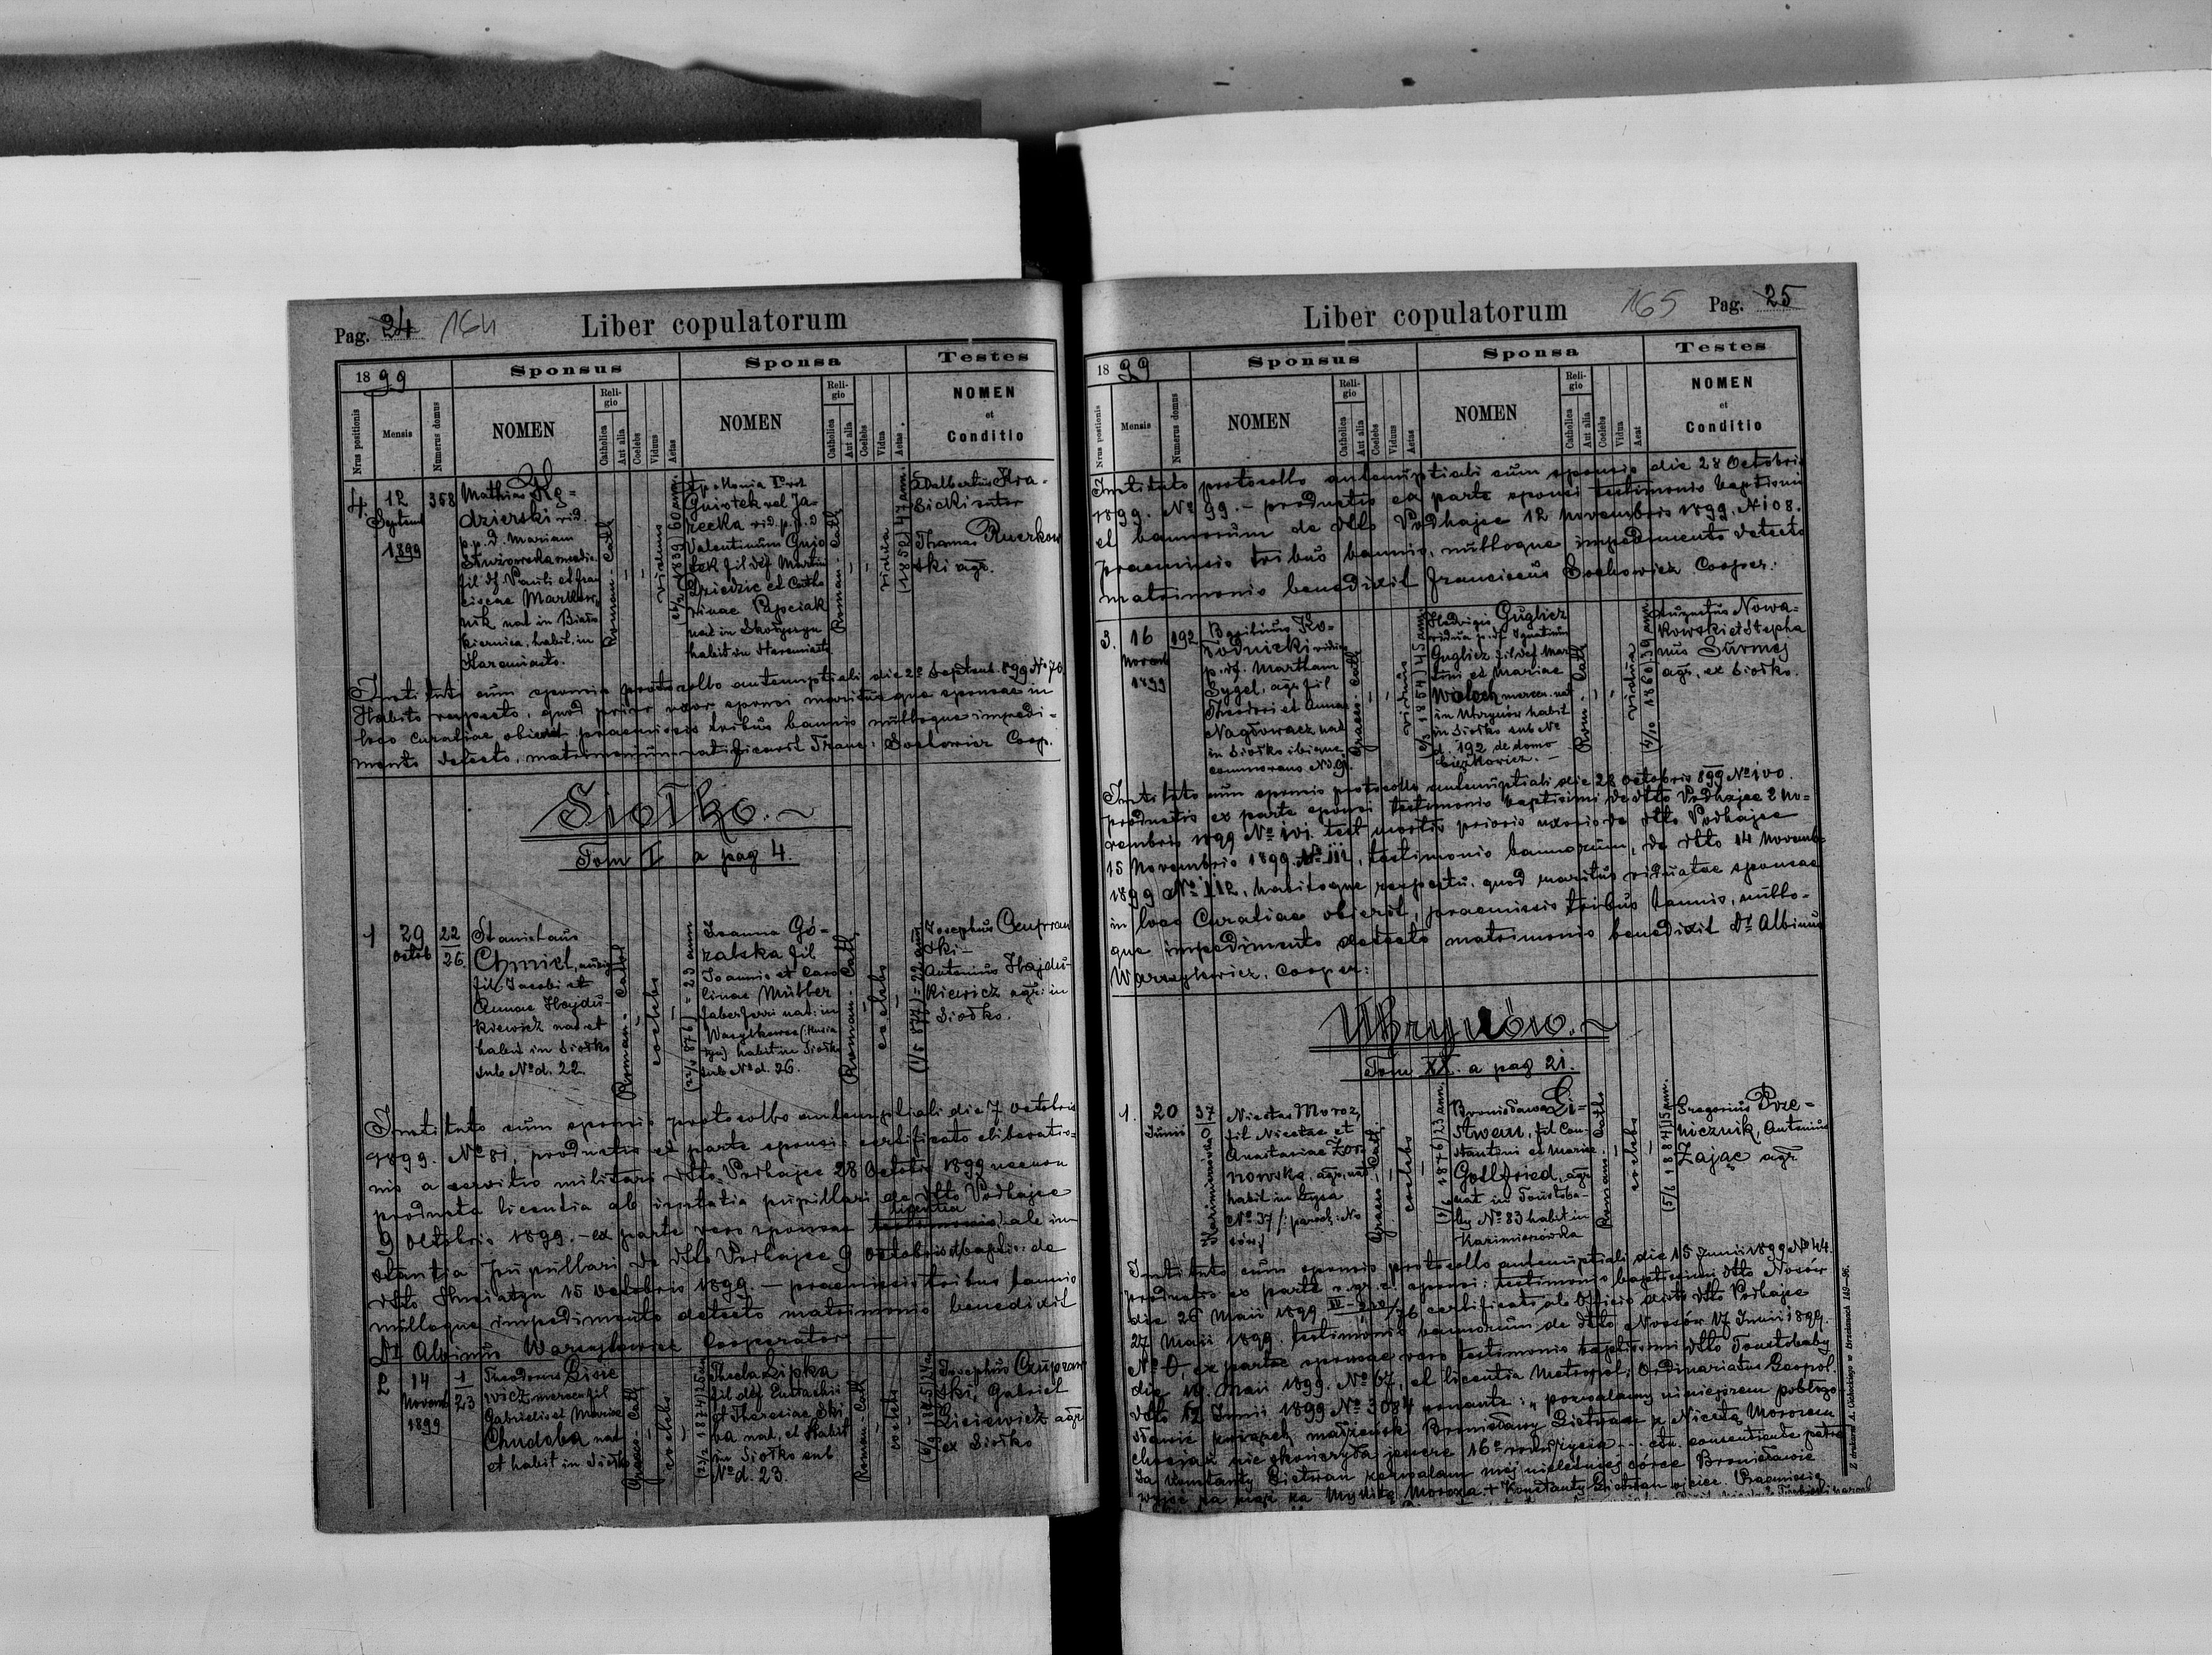 Pag. 24 164 Liber copulatorum
1899 Sponsus Sponsa Testes
Nrus positionis Mensis Numerus domus NOMEN Religio Catholica Aut alia Coelebs Viduus Aetas NOMEN Religio Catholica Aut alia Coelebs Vidua Aetas NOMEN et Conditio
4. 12 Septemb 1899 358
Mathias
dzierski vid.
p. p. d. Mariam
fil df Pauli et Fran
ciscae Markow
nik nat in
kiernica, habit. in
Staremiasto.
Roman-Cath
viduus
1839 60 ann.
Apollonia
Gniotek vel Ja-
recka vid. p. p. d
Valentinum Gnio
tek fil def Martini
Dziedzic et Catha
rinae Pupciak
nat in
habit in Staremiasto
Roman-Cath
vidua
(1852) 47 ann.
Adalbertus Kra-
sicki sutor
Thomas Ruczkow
ski agr.
Instituto cum sponsis protocollo antenuptiali die 2º Septemb. 899 Nº 70.
Habito respectu, quod prior uxor sponsi maritusque sponsae in
loco Curatiae obierit praemissis tribus bannis nulloque impedi-
mento detecto, matrimonium ratificavit Franc: Sochowicz Coop.
Siołko.
Tom I a pag 4.
1 29 Octob 22/26
Stanislaus
Chmiel,
fil. Jacobi et
Annae Hajdu-
kiewicz nat et
habit in Siołko
sub Nº d. 22.
Roman-Cathol
coelebs
(22/4 876) = 23 ann
Joanna Gó-
ralska fil
Joannis et Caro
linae Müller
faber ferri nat: in
Wasylkowce (: Husia
tyn) habit in Siołko
sub Nº d. 26.
Roman-Cath.
coelebs
(1/5 877) = 22 ann
Josephus Czuprow
ski -
Antonius Hajdu-
kiewicz agr: in
Siołko.
Instituto cum sponsis protocollo antenuptiali die 7 octobris
1899. Nº 81, productis ex parte sponsi: certificato eliberatio-
nis a servitio militari dtto Podhajce 28 Octobr 1899 necnon
producta licentia ab instantia pupillari de dtto Podhajce
9 Octobris 1899. - ex parte vero sponsae licentia ab in-
stantia pupillari de dtto Podhajce 9 octobris et bapti: de
dtto Husiatyn 15 Octobris 1899. - praemissis tribus bannis
nulloque impedimento detecto matrimonio benedixit
Dr Albinus Warzylkiewicz Cooperator
2 14 Novemb 1899 1/23
Theodorus Lisie
wicz fil
Gabrielis et Mariae
Chudoba nat
et habit in Siołko
Graeco-Cath
coelebs
1874) 25 ann
Thecla Lipka
fil def Eustachii
et Theresiae Ski
ba nat. et habit
in Siołko sub
Nº d. 23.
Roman-Cath
coelebs
(6/9 1875) 24 a
Josephus Czuprow
ski, Gabriel
Lisiewicz agr
ex Siołko
Liber copulatorum 165 Pag. 25
1899 Sponsus Sponsa Testes
Nrus positionis Mensis Numerus domus NOMEN Religio Catholica Aut alia Coelebs Viduus Aetas NOMEN Religio Catholica Aut alia Coelebs Vidua Aeat NOMEN et Conditio
Instituto protocollo antenuptiali cum sponsis die 28 Octobris
1899. Nº 99. - productis ex parte sponsi testimonio baptismi
et bannorum de dtto Podhajce 12 Novembris 1899. N 108.
praemissis tribus bannis, nulloque impedimento detecto
matrimonio benedixit Franciscus Sochowicz Cooper.
3. 16 Novemb 1899 192
Basilius Ko-
rodnicki viduus
p. df. Martham
Pygel, agr. fil
Theodori et Annae
Nagłowacz nat
in Siołko ibique
commorans Nº 91.
Graeco-Cath
viduus
1854) 45 ann
Hedvigis Guglicz
vidua p. df. Ignatium
Guglicz fil def Mar
tini et Mariae
Wołoch nat
in Uhrynów habit
in Siołko sub Nº
d. 192 de domo
Rom. Cath
vidua
(4/10 1860) 39 ann
Augustus Nowa-
kowski et Stepha
nus Surmaj
agr. ex Siołko.
Instituto cum sponsis protocollo antenuptiali die 28 octobris 899 Nº 100.
productis ex parte sponsi testimonio baptismi de dtto Podhajce 2 No-
vembris 1899 Nº 101. test mortis prioris uxoris de dtto Podhajce
15 Novembris 1899. Nº 111, testimonio bannorum, de dtto 14 Novemb
1899 Nº 112, habitoque respectu, quod maritus viduatae sponsae
in loco Curatiae obierit, praemissis tribus bannis, nullo-
que impedimento detecto matrimonio benedixit Dr Albinus
Warzylkiewicz, Cooper:
Uhrynów.
Tom XI. a pag 21.
1. 20 Junii 37/0
Nicetas Moroz,
fil Nicetae et
Anastasiae
nowska, agr. nat
habit in Łysa
Nº 37 /: paroch: No
sów:/
Graeco-Cath.
coelebs
1876) 23 ann
Bronislawa Li-
stwan, fil Con-
stantini et Mariae
Gottfried, agr.
nat in Toustoba-
by Nº 83 habit in
Kazimierówka
Roman-Cath
coelebs
(5/6 1884) 15 ann.
Gregorius Pore-
nicznik, Antonius
Zając agr
Instituto cum sponsis protocollo antenuptiali die 15 Junii 1899 Nº 44.
productis ex parte r. gr. c. sponsi: testimonio baptismi dtto Nosów
die 26 Maii 1899 certificato ab Officio dtto Podhajce
27 Maii 1899. testimonio bannorum de dtto Nosów 17 Junii 1899.
Nº 0, ex parte sponsae vero testimonio baptismi dtto Toustobaby
die 19. Maii 1899. Nº 67, et licentia Metropol. Ordinariatus Leopol.
dtto 12 Junii 1899 Nº 3084 sonante: „pozwalamy niniejszem pobłogo-
sławić związek małżeński Bronisławy Listwan z Nicetą Morozem
chociaż nie skończyła jeszcze 16º roku życia ... consentiente patre
Ja Konstanty Listwan zezwalam mej nieletniej córce Bronisławie
wyjść za mąż za Mykitę Moroza + Konstanty Listwan ojciec. Praemissis
Z drukarni A. Cichockiego w Brzeżanach 149-96.